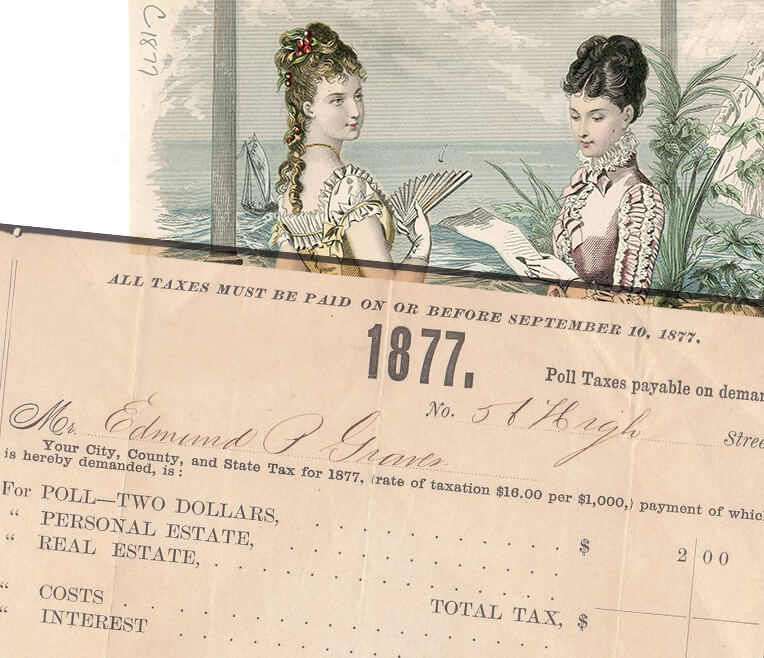 C1877
ALL TAXES MUST BE PAID ON OR BEFORE SEPTEMBER 10, 1877.
1877.
Poll Taxes payable on deman
No. 56 High Stree
Mr. Edmund P Graves
Your City, County, and State Tax for 1877, (rate of taxation $16.00 per $1,000,) payment of which
is hereby demanded, is:
For POLL—TWO DOLLARS, $ 2 00
“ PERSONAL ESTATE,
“ REAL ESTATE,
TOTAL TAX, $
“ COSTS
“ INTEREST